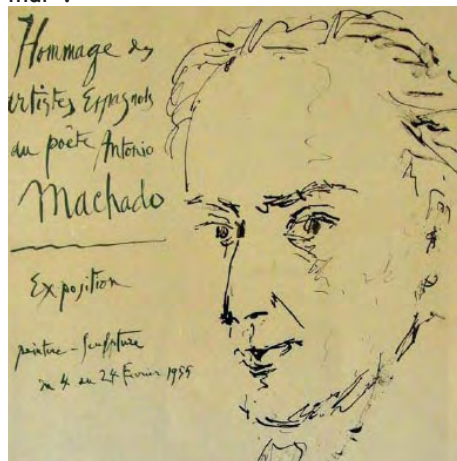 mar".
Hommage des
artistes Espagnols
au poète Antonio
Machado
Exposition
peinture - Sculpture
du 4 au 24 Février 1955